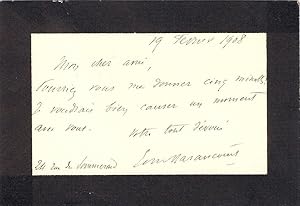 19 Février 1908
Mon cher ami,
Pourriez vous me donner cinq minutes?
Je voudrais bien causer un moment
avec vous.
Votre tout dévoué
24 rue du Sommerard